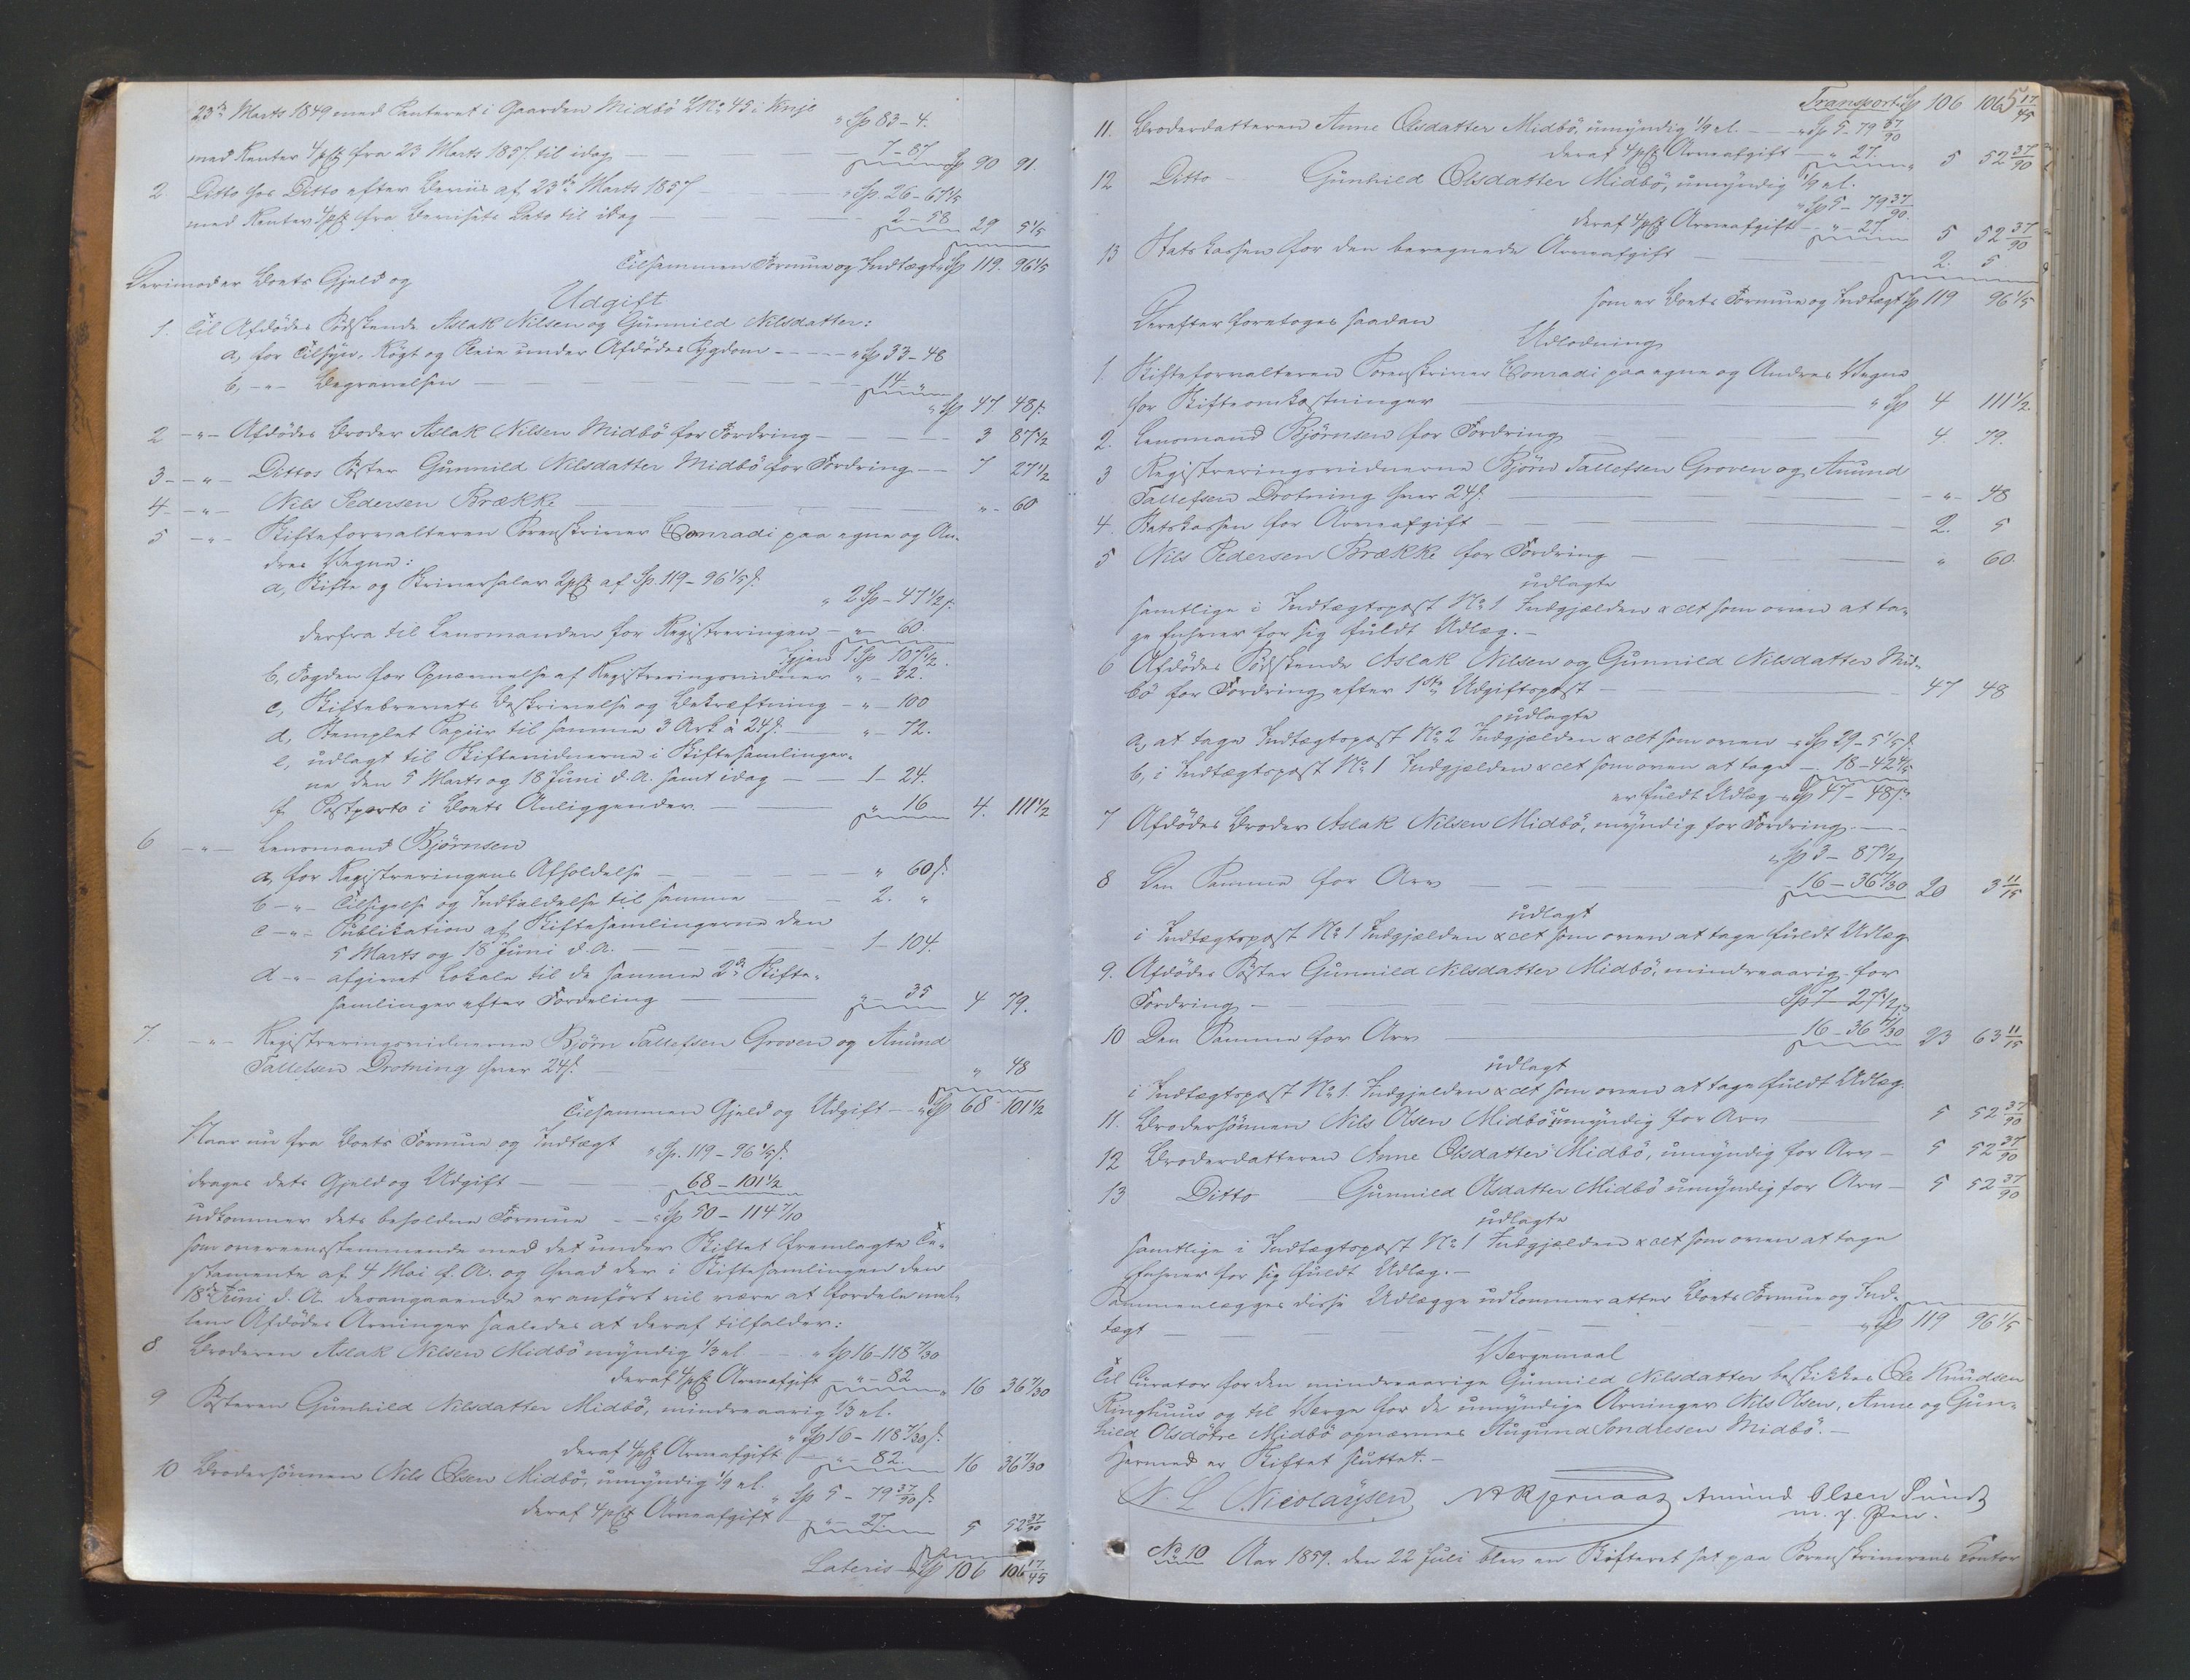 23de Marts 1849 med Panteret i Gaarden Midbö LNo 45 i Vinje
" Sp 83 - 4.
med Renter 4 pCt fra 23 Marts 1857 til idag — 7 - 87 Sp 90 91.
2 Ditto hos Ditto efter Beviis af 23de Marts 1857 — " Sp. 26 - 67 1/5
med Renter 4 pCt fra Bevisets Dato til idag — 2 - 58 29 5 1/5
Tilsammen Formue og Indtægt " Sp 119. 96 1/5
Derimod er Boets Gjeld og
Udgift
1. Til Afdödes Södskende Aslak Nilsen og Gunnild Nilsdatter:
a, for Tilsyn, Rögt og Pleie under Afdödes Sygdom - - - - " Sp 33 - 48
b, - " - Begravelsen — 14 - "
" Sp 47. 48 s.
2 - " - Afdödes Broder Aslak Nilsen Midbö for Fordring - 3 87 1/2
3 - - " - Dittos Söster Gunnild Nilsdatter Midbö for Fordring - - 7 27 1/2
4 - - " - Nils Pedersen Brække — " - 60
5 - " - Skifteforvalteren Sorenskriver Conradi paa egne og An-
dres Vegne:
a, Skifte og Skriversalær 2 pCt af Sp. 119 - 96 1/5 s.
" 2 Sp - 47 1/2 s.
derfra til Lensmanden for Registreringen - " - 60.
Igjen 1 Sp 107 1/2.
b, Fogden for Opnævnelse af Registreringsvidner " - 32.
c, Skiftebrevets Beskrivelse og Bekræftning - " - 100
d, Stemplet Papiir til samme 3 Ark à 24 s. — " - 72.
e, udlagt til Skiftevidnerne i Skiftesamlinger-
ne den 5 Marts og 18 Juni d. A. samt idag — 1 - 24.
f, Postporto i Boets Anliggender — " 16 4. 111 1/2
6 - " - Lensmand Björnsen
a, for Registreringens Afholdelse — " 60 s.
b - " - Tilsigelse og Indkaldelse til samme — 2. "
c - " - Publikation af Skiftesamlingerne den
5 Marts og 18 Juni d. A. — 1 - 104.
d - " - afgivet Lokale til de samme 2de Skifte-
samlinger efter Fordeling — " - 35 4 79.
7. - " - Registreringsvidnerne Björn Tallefsen Groven og Aanund
Tallefsen Drotning hver 24 s. — " 48
Tilsammen Gjeld og Udgift — " Sp 68 - 101 1/2
Naar nu fra Boets Formue og Indtægt " Sp. 119 - 96 1/5 s.
drages dets Gjeld og Udgift — 68 - 101 1/2
udkommer dets beholdne Formue - - " Sp 50 - 114 7/10
som overeensstemmende med det under Skiftet fremlagte Te-
stamente af 4 Mai f. A. og hvad der i Skiftesamlingen den
18de Juni d. A. desangaaende er anfört vil være at fordele mel-
lem Afdödes Arvinger saaledes at deraf tilfalder:
8 Broderen Aslak Nilsen Midbö myndig 1/3 el. — " Sp 16 - 118 7/30
deraf 4 pCt Arveafgift - " - 82 " 16 36 7/30
9 Söstren Gunhild Nilsdatter Midbö, mindreaarig 1/3 el.
" Sp 16 - 118 7/30 s.
deraf 4 pCt Arveafgift - " - 82. 16 36 7/30
10 Brodersönnen Nils Olsen Midbö, umyndig 1/9 el.
" Sp 5 - 79 37/90 s.
deraf 4 pCt Arveafgift - " - 27. 5 52 37/90
Lateris " Sp 106 106 17/45
Transport Sp 106 106 17/45
11. Broderdatteren Anne Olsdatter Midbö, umyndig 1/9 el. — " Sp 5 - 79 37/90
deraf 4 pCt Arveafgift — " 27. " 5 52 37/90
12 Ditto - Gunhild Olsdatter Midbö, umyndig 1/9 el.
" Sp 5 - 79 37/90.
deraf 4 pCt Arveafgift - " - 27. 5 52 37/90
13 Statskassen for den beregnede Arveafgift — 2. 5.
som er Boets Formue og Indtægt Sp 119 96 1/5
Derefter foretoges saadan
Udlodning
1. Skifteforvalteren Sorenskriver Conradi paa egne og Andres Vegne
for Skifteomkostninger — " Sp 4 111 1/2.
2. Lensmand Björnsen for Fordring — 4. 79.
3 Registreringsvidnerne Björn Tallefsen Groven og Aanund
Tallefsen Drotning hver 24 s. — - " - 48
4. Statskassen for Arveafgift — 2. 5
5 Nils Pedersen Brække for Fordring — " 60.
udlagte
samtlige i Indtægtspost No 1 Indgjælden & alt som oven at ta-
ge Enhver for sig fuldt Udlæg. -
6 Afdödes Södskende Aslak Nilsen og Gunnild Nilsdatter Mid-
bö for Fordring efter 1ste Udgiftspost — 47 48
udlagte
a, at tage Indtægtspost No 2 Indgjælden & alt som oven " Sp 29 - 5 1/5 s.
b, i Indtægtspost No 1 Indgjælden & alt som oven at tage — 18 - 42 4/5
er fuldt Udlæg " Sp 47 - 48 s.
7 Afdödes Broder Aslak Nilsen Midbö, myndig for Fordring —
" Sp 3 - 87 1/2,
8 Den Samme for Arv — 16 - 36 7/30 20 3 11/15
udlagt
i Indtægtspost No 1 Indgjælden & alt som oven at tage fuldt Udlæg
9. Afdödes Söster Gunnild Nilsdatter Midbö, mindreaarig for
Fordring — Sp 7 - 27 1/2 s.
10 Den Samme for Arv — 16 - 36 7/30 23 63 11/15
udlagt
i Indtægtspost No 1. Indgjelden & alt som oven at tage fuldt Udlæg.
11. Brodersönnen Nils Olsen Midbö umyndig for Arv — 5 52 37/90
12 Broderdatteren Anne Olsdatter Midbö, umyndig for Arv — 5 52 37/90
13 Ditto — Gunnild Olsdatter Midbö umyndig for Arv — 5 52 37/90
udlagte
samtlige i Indtægtspost No 1 Indgjælden & alt som oven at tage
Enhver for sig fuldt Udlæg. -
Sammenlægges disse Udlægge udkommer atter Boets Formue og Ind-
tægt — " Sp 119 96 1/5
Værgemaal
Til Curator for den mindreaarige Gunnild Nilsdatter beskikkes Ole Knudsen
Ringhuus og til Værge for de umyndige Arvinger Nils Olsen, Anne og Gun-
hild Olsdötre Midbö opnævnes Augund Sondresen Midbö. -
Hermed er Skiftet sluttet. -
N. L. Nicolaysen Amund Olsen Sund
m. p. Pen.
No 10 Aar 1859. den 22 Juli blev en Skifteret sat paa Sorenskriverens Kontor